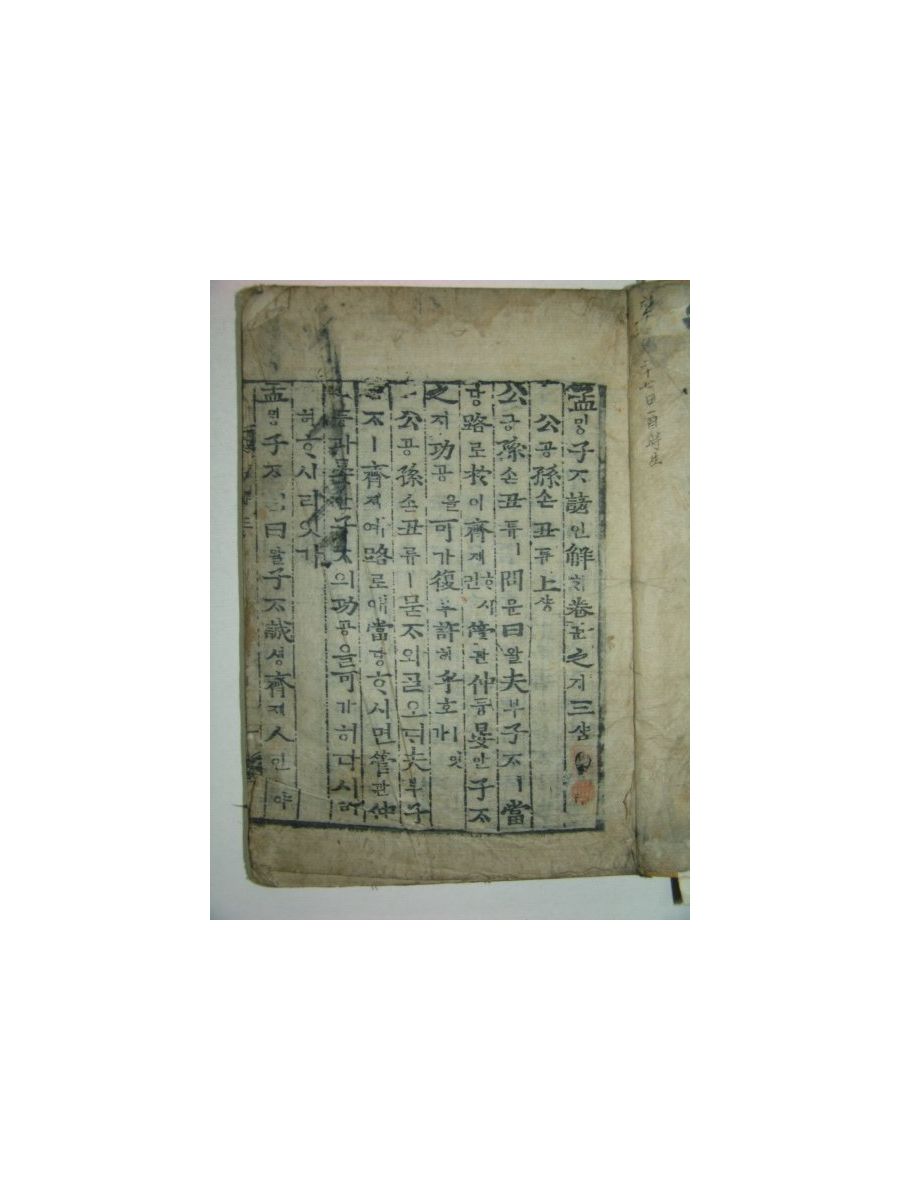 孟ᄆᆡᆼ子ᄌᆞ諺언解ᄒᆡ卷권之지三삼
公공孫손丑튜上샹
公공孫손丑튜ㅣ問문曰왈夫부子ᄌᆞㅣ當
당路로於어齊졔ᄒᆞ시면管관仲듕晏안子ᄌᆞ
之지功공을可가復부許허乎호ㅣ잇가
公공孫손丑튜ㅣ묻ᄌᆞ와ᄀᆞᆯ오ᄃᆡ夫부子
ᄌᆞㅣ齊졔예路로애當당ᄒᆞ시면管관仲
듕과晏안子ᄌᆞ의功공을可가히다시許
허ᄒᆞ시리잇가
孟ᄆᆡᆼ子ᄌᆞㅣ曰왈子ᄌᆞ誠셩齊졔人인